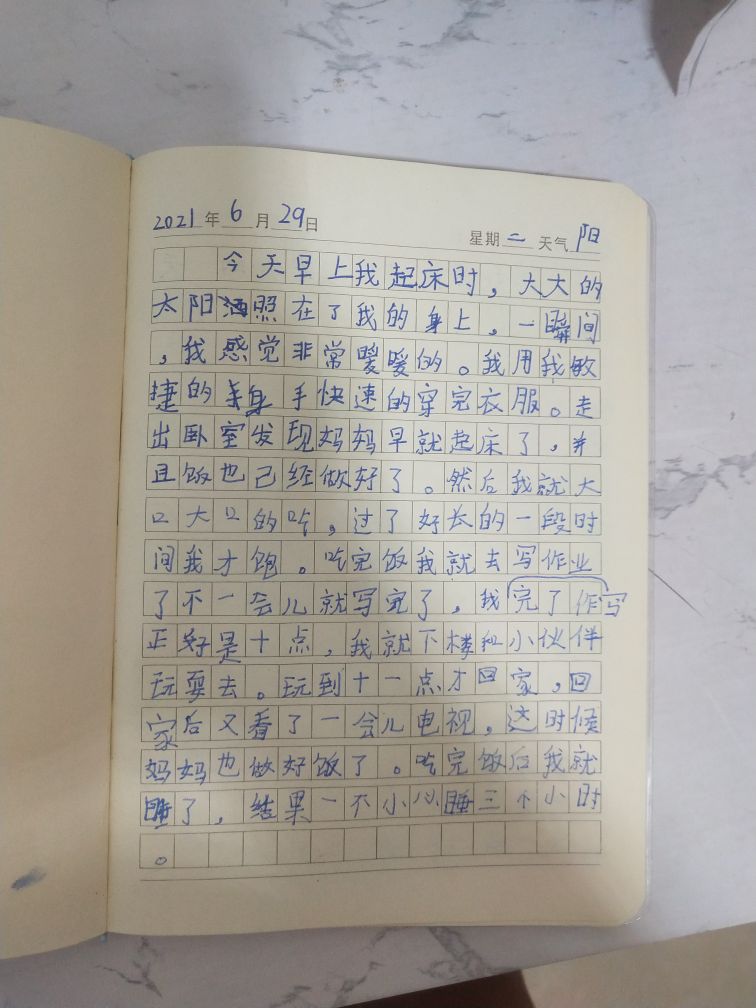 2021年6月29日 星期二 天气阳
今天早上我起床时，大大的
太阳照在了我的身上，一瞬间
，我感觉非常暖暖的。我用我敏
捷的身手快速的穿完衣服。走
出卧室发现妈妈早就起床了，并
且饭也己经做好了。然后我就大
口大口的吃，过了好长的一段时
间我才饱。吃完饭我就去写作业
了不一会儿就写完了，我完了作写
正好是十点，我就下楼和小伙伴
玩耍去。玩到十一点才回家，回
家后又看了一会儿电视。这时候
妈妈也做好饭了。吃完饭后我就
睡了，结果一不小心睡三个小时
。